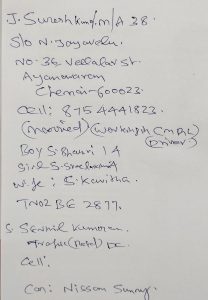 J. Sureshkumar M/A 38.
S/o N. Jayavelu
No. 36 Vellalar st.
Ayanavaram
Chennai-600023
Cell: 8754441823
(married) (working in CMRL
Driver)
Boy S. 14
Girl S.
Wife: S. Kavitha.
TN02 BE 2877.
S. Senthil Kumaran
Trafic
Cell:
Car: Nissan Sunny